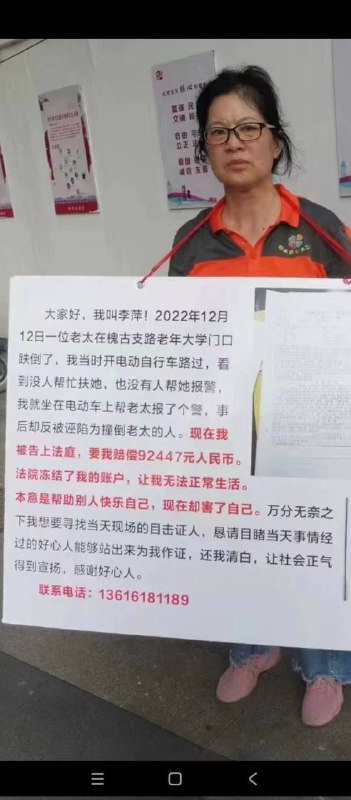 富强 民
文明 和
自由 平
公正
爱国
诚信 友善
大家好，我叫李萍！2022年12月
12日一位老太在槐古支路老年大学门口
跌倒了，我当时开电动自行车路过，看
到没人帮忙扶她，也没有人帮她报警，
我就坐在电动车上帮老太报了个警，事
后却反被诬陷为撞倒老太的人。现在我
被告上法庭，要我赔偿92447元人民币。
法院冻结了我的账户，让我无法正常生活。
本意是帮助别人快乐自己，现在却害了自己。万分无奈之
下我想要寻找当天现场的目击证人，恳请目睹当天事情经
过的好心人能够站出来为我作证，还我清白，让社会正气
得到宣扬，感谢好心人。
联系电话：13616181189